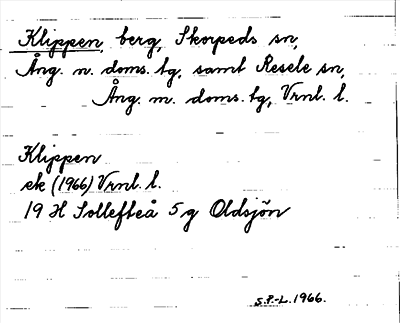 Klippen, berg, Skorpeds sn,
Ång. n. doms. tg, samt Resele sn,
Ång. m. doms. tg, Vrnl. l.
Klippen
ek (1966) Vrnl. l.
19 H Sollefteå 5 g Oldsjön
S.P.-L. 1966.